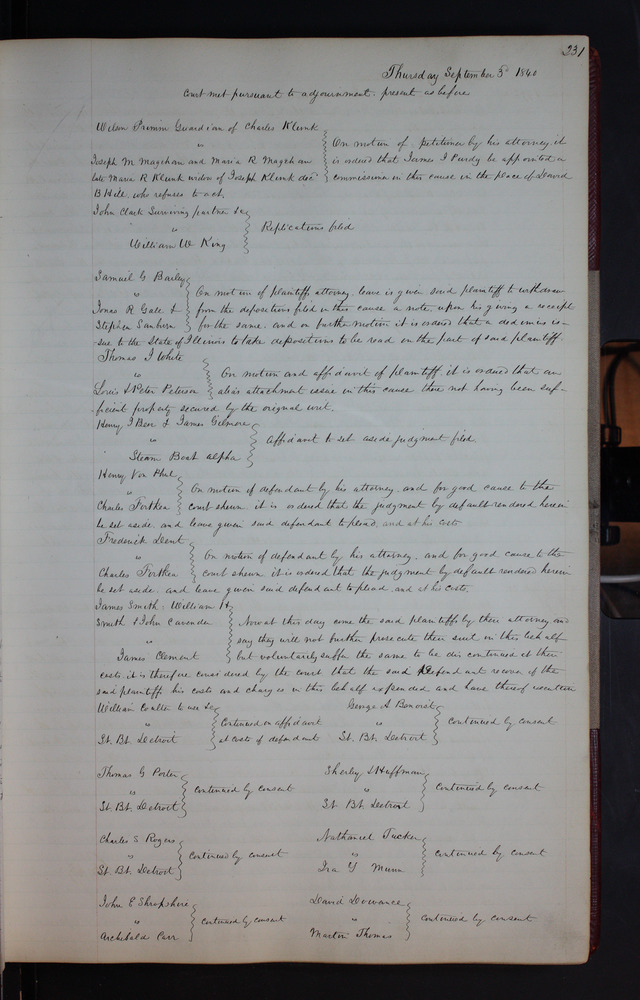 231
Thursday September 3d 1840
Court met pursuant to adjournment. present as before
Wilson Primm Guardian of Charles Klunk
"
Joseph M Mageham and Maria R Mageham
late Maria R Klunk widow of Joseph Klunk decd
On motion of petitioner by his attorney it
is ordered that James I Purdy be appointed a
commissioner in this cause in the place of David
B Hill who refuses to act.
John Clark Surviving partner &c
"
William W King
Replications filed
Samuel G Bailey
"
Jonas R Gale &
Stephen Sanborn
On motion of plaintiff attorney leave is given said plaintiff to withdraw
from the depositions filed in this cause a note, upon his giving a receipt
for the same. and on further motion it is ordered that a dedimus is-
sue to the State of Illinois to take depositions to be read on the part of said plaintiff.
Thomas J White
"
Louis & Peter Peterson
On motion and affidavit of plaintiff it is ordered that an
alias attachment issue in this cause there not having been suf-
ficient property secured by the original writ.
Henry J Bere & James Gilmore
"
Steam Boat Alpha
Affidavit to set aside judgment filed
Henry Von Phul
"
Charles Fortken
On motion of defendant by his attorney. and for good cause to the
court shewn it is ordered that the judgment by default rendered herein
be set aside. and leave given said defendant to plead, and at his costs
Frederick Dent
"
Charles Fortken
On motion of defendant by his attorney. and for good cause to the
court shewn it is ordered that the judgment by default rendered herein
be set aside. and leave given said defendant to plead. and at his costs.
James Smith. William H
Smith & John Cavender
"
James Clement
Now at this day come the said plaintiffs by their attorney and
say they will not further prosecute their suit in this behalf
but voluntarily suffer the same to be discontinued at their
costs. it is therefore considered by the court that the said Defendant recover of the
said plaintiffs his costs and charges in this behalf expended and have thereof execution
William Coulter to use &c
"
St. Bt. Detroit
Continued on affidavit
at costs of defendant
George A
"
St. Bt. Detroit
Continued by consent
Thomas G Porter
"
St. Bt. Detroit
Continued by consent
Sherley & Huffman
"
St Bt. Detroit
Continued by consent
Charles S Rogers
"
St. Bt. Detroit
Continued by consent
Nathaniel Tucker
"
Ira Y Munn
Continued by consent
John E Shropshire
"
Archibald Carr
Continued by consent
David
"
Martin Thomas
Continued by consent